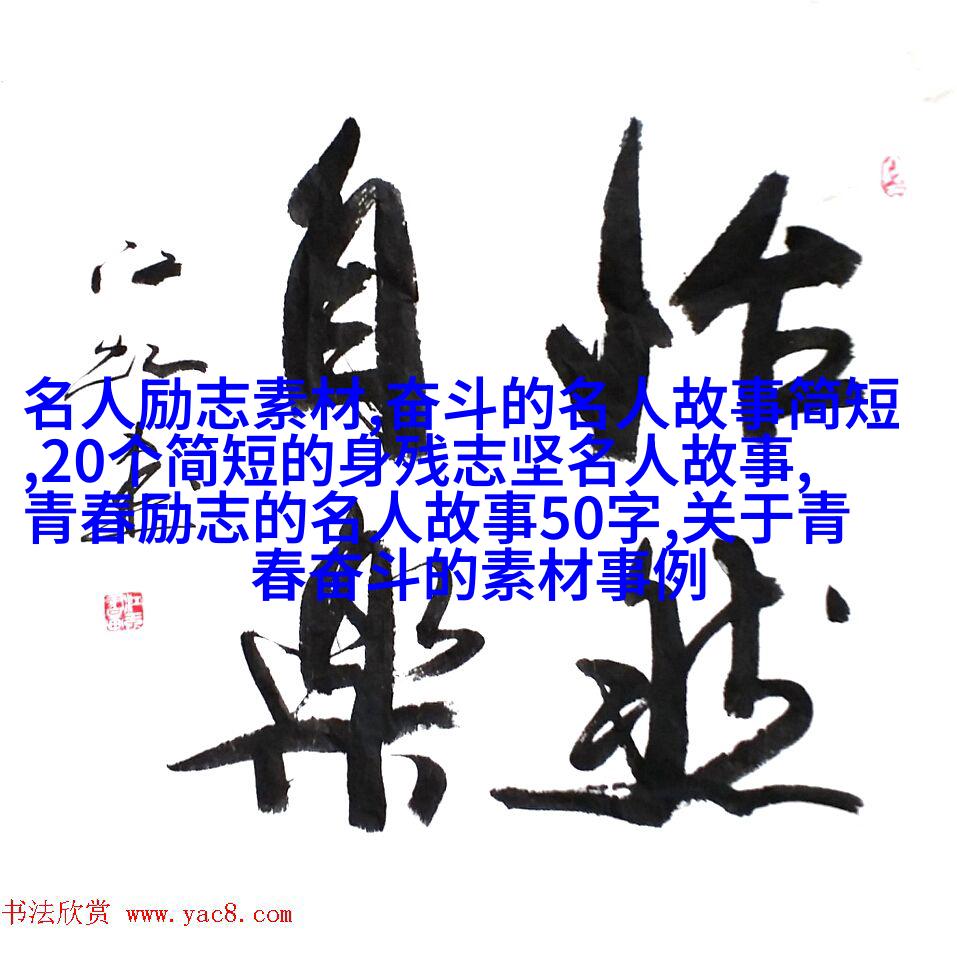 怡然
自樂
名人励志素材,奋斗的名人故事简短
,20个简短的身残志坚名人故事,
青春励志的名人故事50字,关于青
春奋斗的素材事例
书法欣赏 www.yac8.com